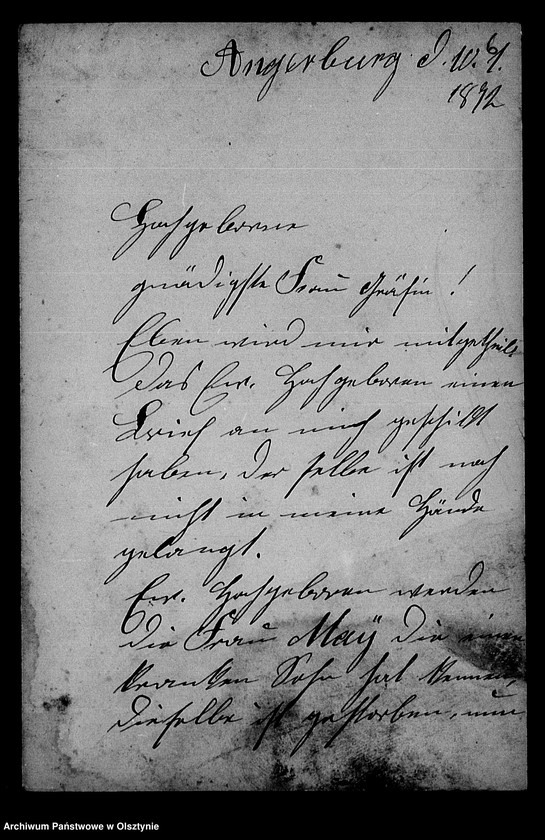 Angerburg d. 10.6/.
1892
Hochgeborne
gnädigste Frau Gräfin!
Eben wird mir mitgetheilt
das Ew. Hochgeboren einen
Brief an mich geschikt
haben, der selbe ist noch
nicht in meine Hände
gelangt.
Ew. Hochgeboren werden
die Frau Maÿ die einen
kranken Sohn hat kennen,
dieselbe ist gestorben, nun
Archiwum Państwowe w Olsztynie